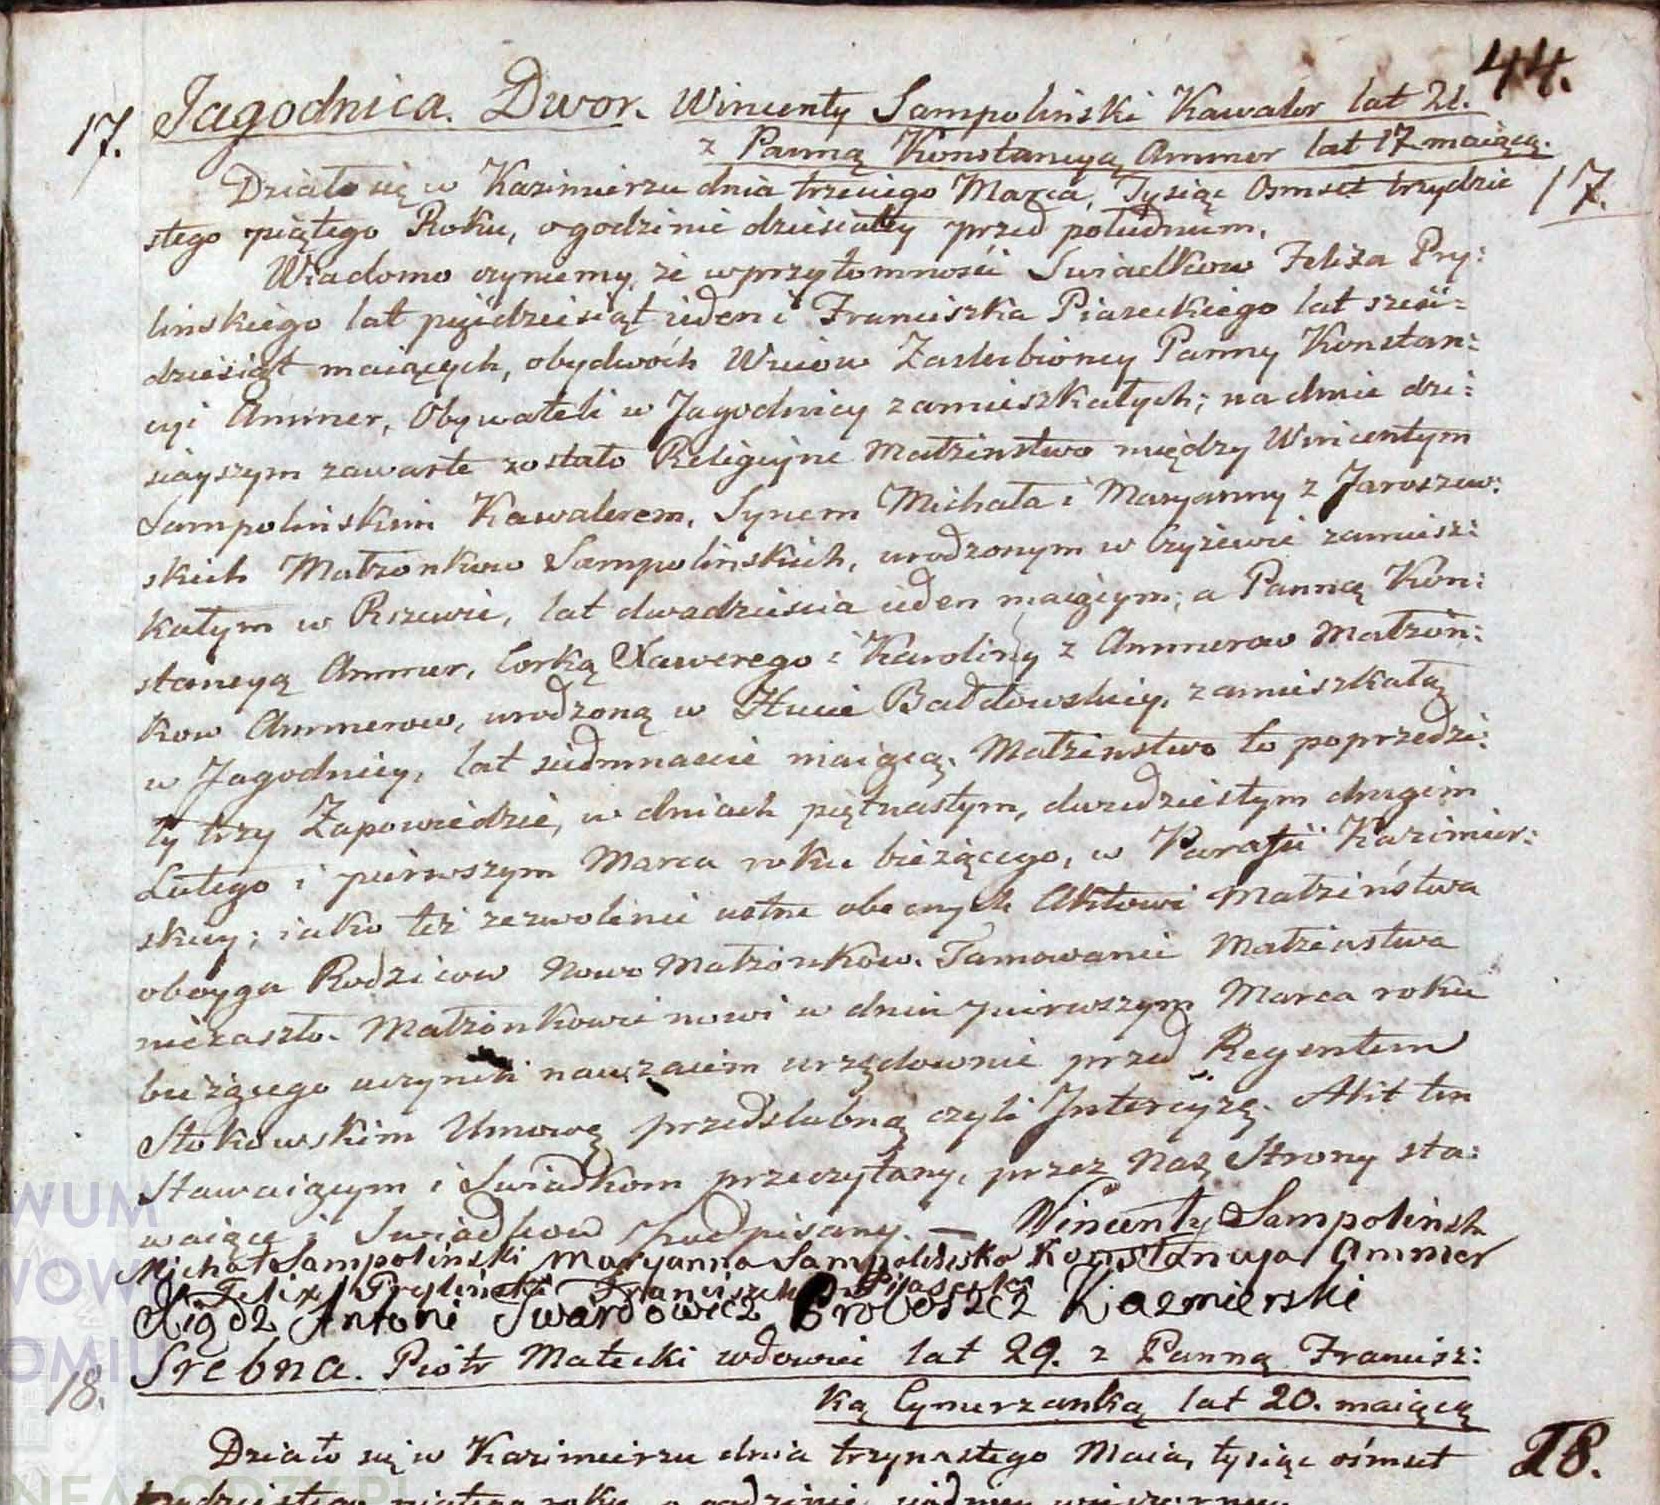 44.
17. Jagodnica. Dwor. Wincenty Sampolinski Kawaler lat 21.
z Panną Konstancyą Ammer lat 17 maiącą.
17.
Działo się w Kazimierzu dnia trzeciego Marca, Tysiąc Osmset trzydzie
stego piątego Roku, o godzinie dziesiątey przed południem.
Wiadomo czyniemy, że w przytomności Swiadkow Felixa Pry:
linskiego lat pięidziesiąt ieden i Franciszka Piaseckiego lat sześi=
dziesiąt maiących, obydwóch Wuiow Zaslubioney Panny Konstan:
cyi Ammer, Obywateli w Jagodnicy zamieszkałych; na dniu dzi:
sieyszym zawarte zostało Religiyne Małżeństwo między Wincentym
Sampolinskim Kawalerem, Synem Michała i Maryanny z Jaroszew:
skich Małżonkow Sampolinskich, urodzonym w Czyżewie zamiesz:
kałym w Rszewie, lat dwadziescia ieden maiącym; a Panną Kon:
stancyą Ammer, Corką Xawerego i Karoliny z Ammerow Małżon:
kow Ammerow, urodzoną w Hucie Bałdowskiey, zamieszkałą
w Jagodnicy, lat siedmnascie maiącą. Małżenstwo to poprzedzi:
ły trzy Zapowiedzie, w dniach piętnastym, dwudziestym drugim
Lutego i pierwszym Marca roku bieżącego, w Parafii Kazimier:
skiey; iako też zezwolenie ustne obecnych Aktowi Małżeństwa
oboyga Rodzicow Nowo Małżonków. Tamowanie Małżenstwa
niezaszło. Małżonkowie nowi w dniu pierwszym Marca roku
bieżącego uczynili nawzaiem urzędownie przed Regentem
Stokowskim Umowę przedslubną czyli Intercyzę. Akt ten
Stawaiącym i Swiadkom przeczytany, przez Nas, Strony sta:
waiące i Swiadkow podpisany. — Wincenty Sampolinsk
Michał Sampolinski Maryanna Sampolińska Konstancyja Ammer
Felix Pryliński Franciszek Piasecki
Xiądz Antoni Twardowicz Proboszcz Kazmierski
18. Srebna. Piotr Małecki wdowiec lat 29. z Panną Francisz:
ką Cymerzanką lat 20. maiącą
18.
Działo się w Kazimierzu dnia trzynastego Maia, tysiąc ośmset
trzydziestego piątego roku, o godzinie siódmey wieczorney